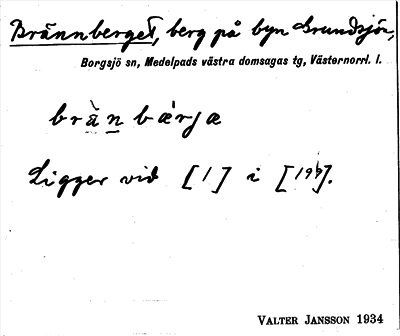 Brännberget, berg på byn Grundsjön,
Borgsjö sn, Medelpads västra domsagas tg, Västernorrl. l.
brànbárjæ
Ligger vid [1] i [199].
VALTER JANSSON 1934